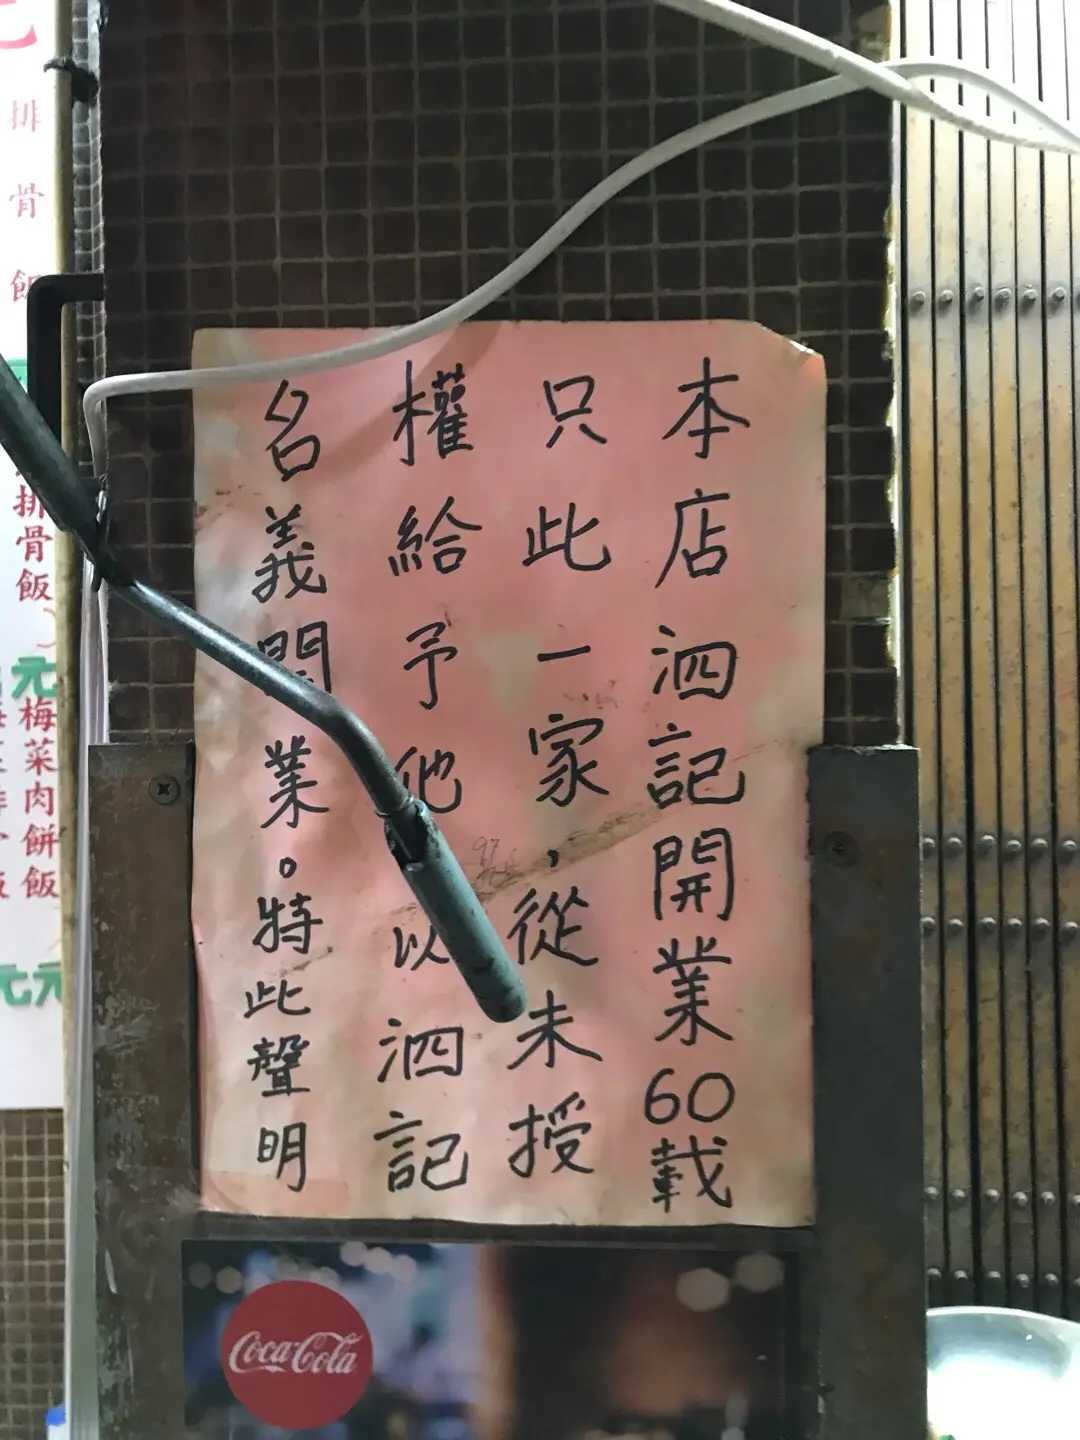 本店泗記開業60載
只此一家，從未授
權給予他以泗記
名義開業。特此聲明
排骨飯
排骨飯
梅菜肉餅飯
元
元
Coca-Cola